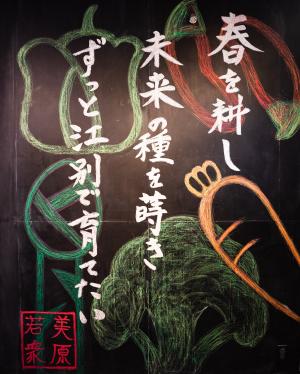 春を耕し
未来の種を蒔き
ずっと江別で育てたい
美原
若衆